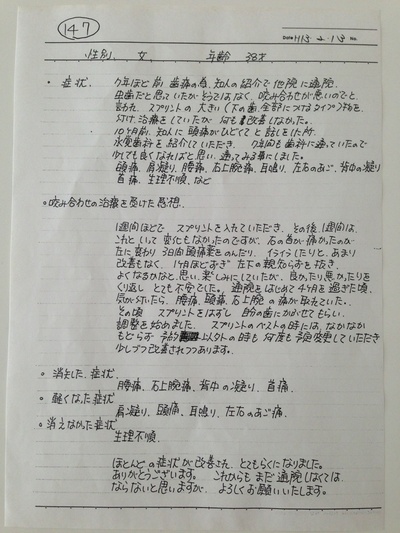 147
Date H15・4・19 No.
性別 女　年齢 38才
・症状. 7年ほど前 歯痛の為、知人の紹介で他院に通院。
虫歯だと思っていたがそうではなく、咬み合わせが悪いのでと
言われ、スプリントの大きい(下の歯全部につけるタイプ)物を
付け、治療をしていたが何も改善しなかった。
10ヶ月前、知人に頭痛がひどくてと話をした所、
歯科を紹介していただき、7年間も歯科に通っていたので
少しでも良くなればと思い、通ってみる事にしました。
頭痛、肩凝り、腰痛、右上腕痛、耳鳴り、左右のあご、背中の凝り
首痛、生理不順、など
○咬み合わせの治療を受けた感想.
1週間ほどで、スプリントを入れていただき、その後、1週間は、
これといって変化もなかったのですが、右の首が痛かったのが
左に変わり 3日間頭痛薬をのんだり、イライラしたりと、あまり
改善もなく、1ヶ月ほどすぎ 左下の親知らずを抜き、
よくなるかなと思い、楽しみにしていたが、良かったり悪かったりを
くり返し とても不安でした。通院をはじめて4ヶ月を過ぎた頃、
気が付いたら、腰痛、頭痛、右上腕の痛が取れていた。
その頃 スプリントをはずし 自分の歯にかぶせてもらい、
調整を始めました。スプリントのベストの時には、なかなか
もどらず 予約以外の時も 何度も予定変更していただき
少しづつ改善されつつあります。
○ 消失した症状
腰痛、右上腕痛、背中の凝り、首痛.
○ 軽くなった症状
肩凝り、頭痛、耳鳴り、左右のあご痛.
○ 消えなかった症状
生理不順.
ほとんどの症状が改善され、とてもらくになりました。
ありがとうございます。これからもまだ通院しなくては、
ならないと思いますが、よろしくお願いいたします。